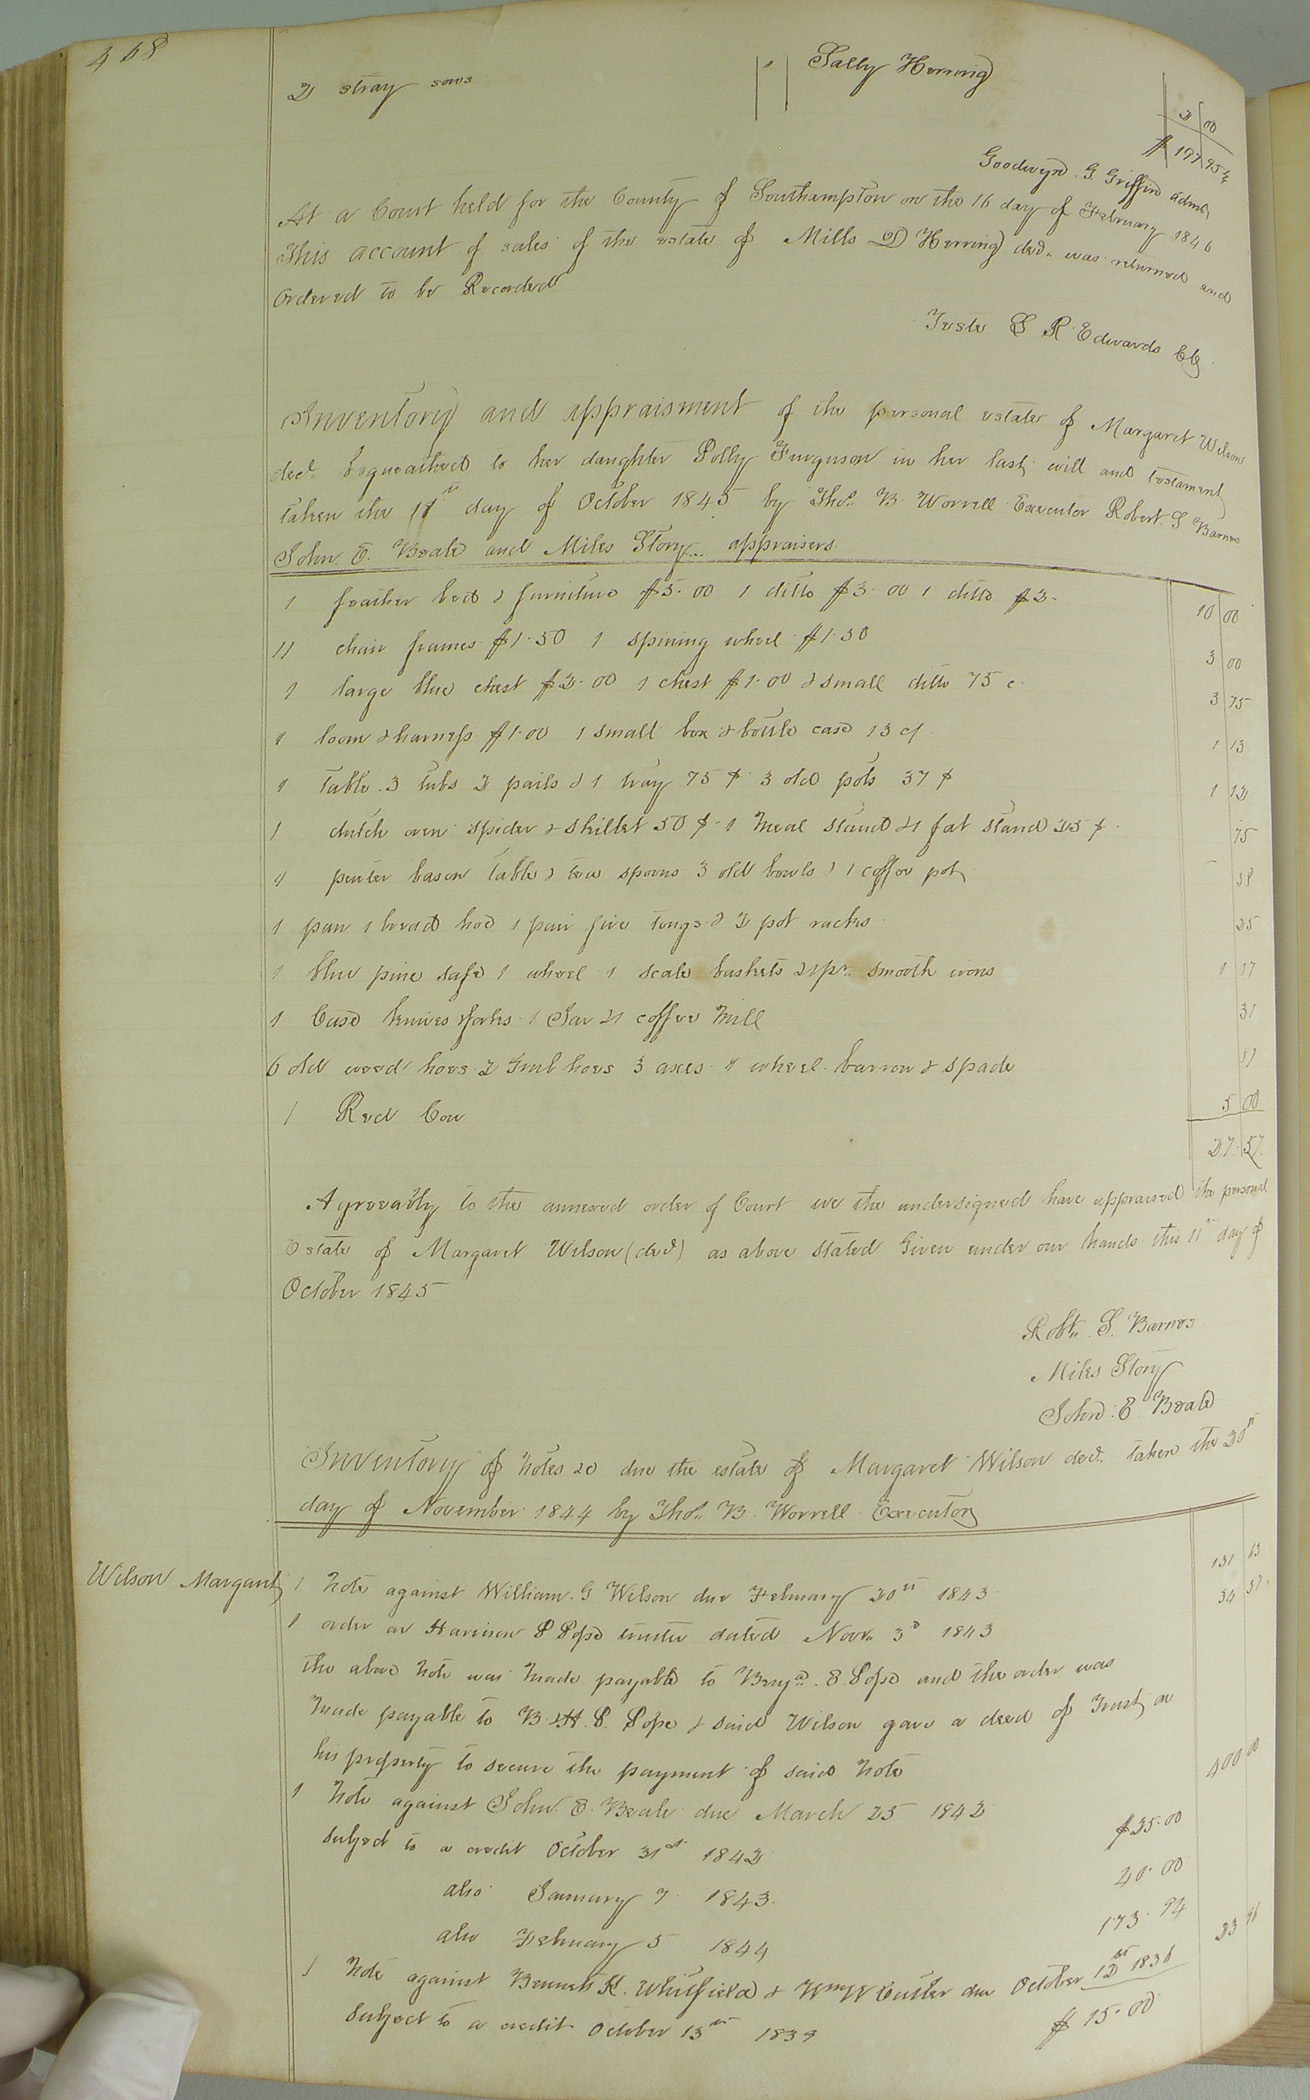 468
2 stray sows " Sally Herring 2 00
$ 197 95 1/4
Goodwyn G. Griffin adm
At a Court held for the County of Southampton on the 16 day of February 1846
This account of sales of the estate of Mills D Herring decd. was returned and
Ordered to be Recorded
Teste L R Edwards Clk
Inventory and appraisment of the personal estate of Margaret Wilson
decd. bequeathed to her daughter Polly Furguson in her last will and testament
taken the 11th day of October 1845 by Thos. B. Worrell Executor Robert S Barnes
John E. Beale and Miles Story appraisers
1 feather bed & furniture $5.00 1 ditto $3.00 1 ditto $2. 10 00
11 chair frames $1.50 1 spining wheel $1.50 3 00
1 large blue chest $2.00 1 chest $1.00 & small ditto 75 c. 3 75
1 loom & harness $1.00 1 small box & bottle case 13 c/ 1 13
1 table 3 tubs 2 pails & 1 tray 75 ¢ 3 old pots 37 ¢ 1 12
1 dutch oven spider & skillet 50 ¢ 1 meal stand & 1 fat stand 25 ¢ 75
1 peuter bason table & tea spoons 3 old bowls & 1 coffee pot 58
1 pan 1 broad hoe 1 pair fire tongs & 2 pot racks 25
1 blue pine safe 1 wheel 1 scale baskets & 1 pr. smooth irons 1 37
1 Case knives & forks 1 Jar & 1 coffee mill 31
6 old weed hoes 2 Grub hoes 3 axes 1 wheel barrow & spade 87
1 Red Cow 5 00
27 57
Agreeably to the annexed order of Court we the undersigned have appraised the personal
Estate of Margaret Wilson (decd) as above stated Given under our hands this 11th day of
October 1845
Robt. S. Barnes
Miles Story
John E Beale
Inventory of Notes &c due the estate of Margaret Wilson decd. taken the 20th
day of November 1844 by Thos. B. Worrell Executor
Wilson Margaret 1 note against William G Wilson due February 20th 1843 131 13
1 order on Harrison P Pope trustee dated Novr. 3d 1843 34 37
the above note was made payable to Benja. E. Pope and the order was
made payable to B & H. P. Pope & said Wilson gave a deed of Trust on
his property to secure the payment of said note
1 note against John E. Beale due March 25 1842 400 00
subject to a credit October 31st 1842 $25.00
also January 7 1843 20.00
also February 5 1844 173.94
1 note against Bennett H. Whitfield & Wm W Cutler due October 12th 1836 23 96
subject to a credit October 13th 1839 $15.00